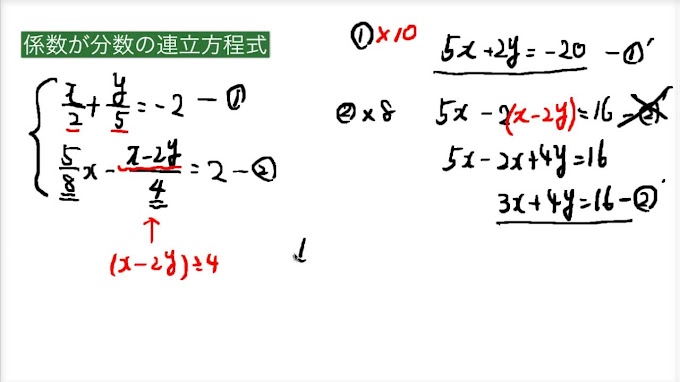 係数が分数の連立方程式
x/2 + y/5 = -2 - ①
5/8 x - x-2y/4 = 2 - ②
(x-2y)÷4
①×10
5x+2y=-20 - ①'
②×8
5x-2(x-2y)=16 - ②'
5x-2x+4y=16
3x+4y=16 - ②'